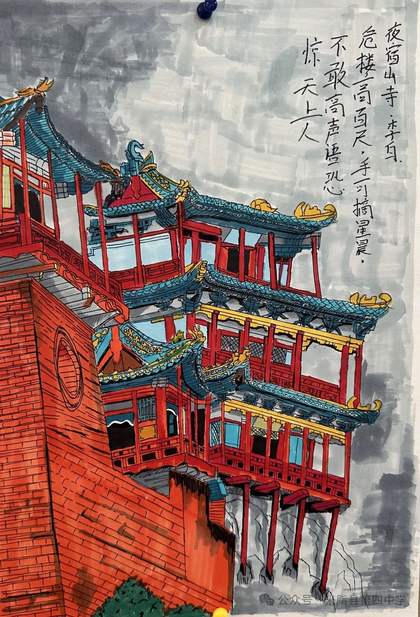 夜宿山寺·李白
危楼高百尺，手可摘星晨，
不敢高声语恐
惊天上人
公众号
第四中学